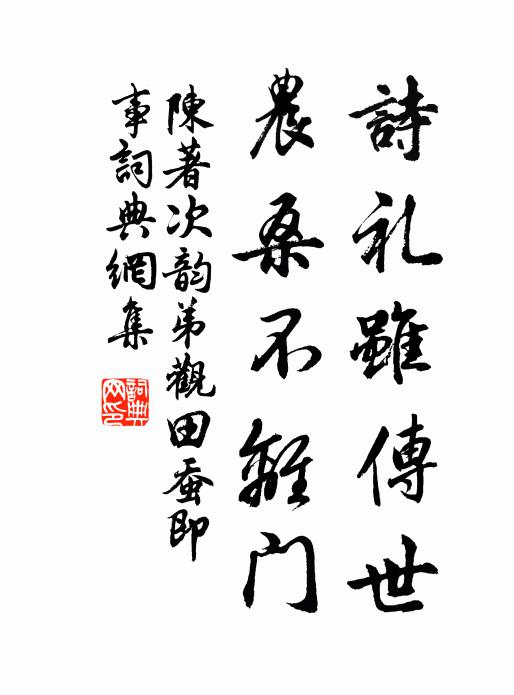 詩礼雖傳世
農桑不離門
陳著次韵弟觀田蚕即
事詞典網集
詞典网印